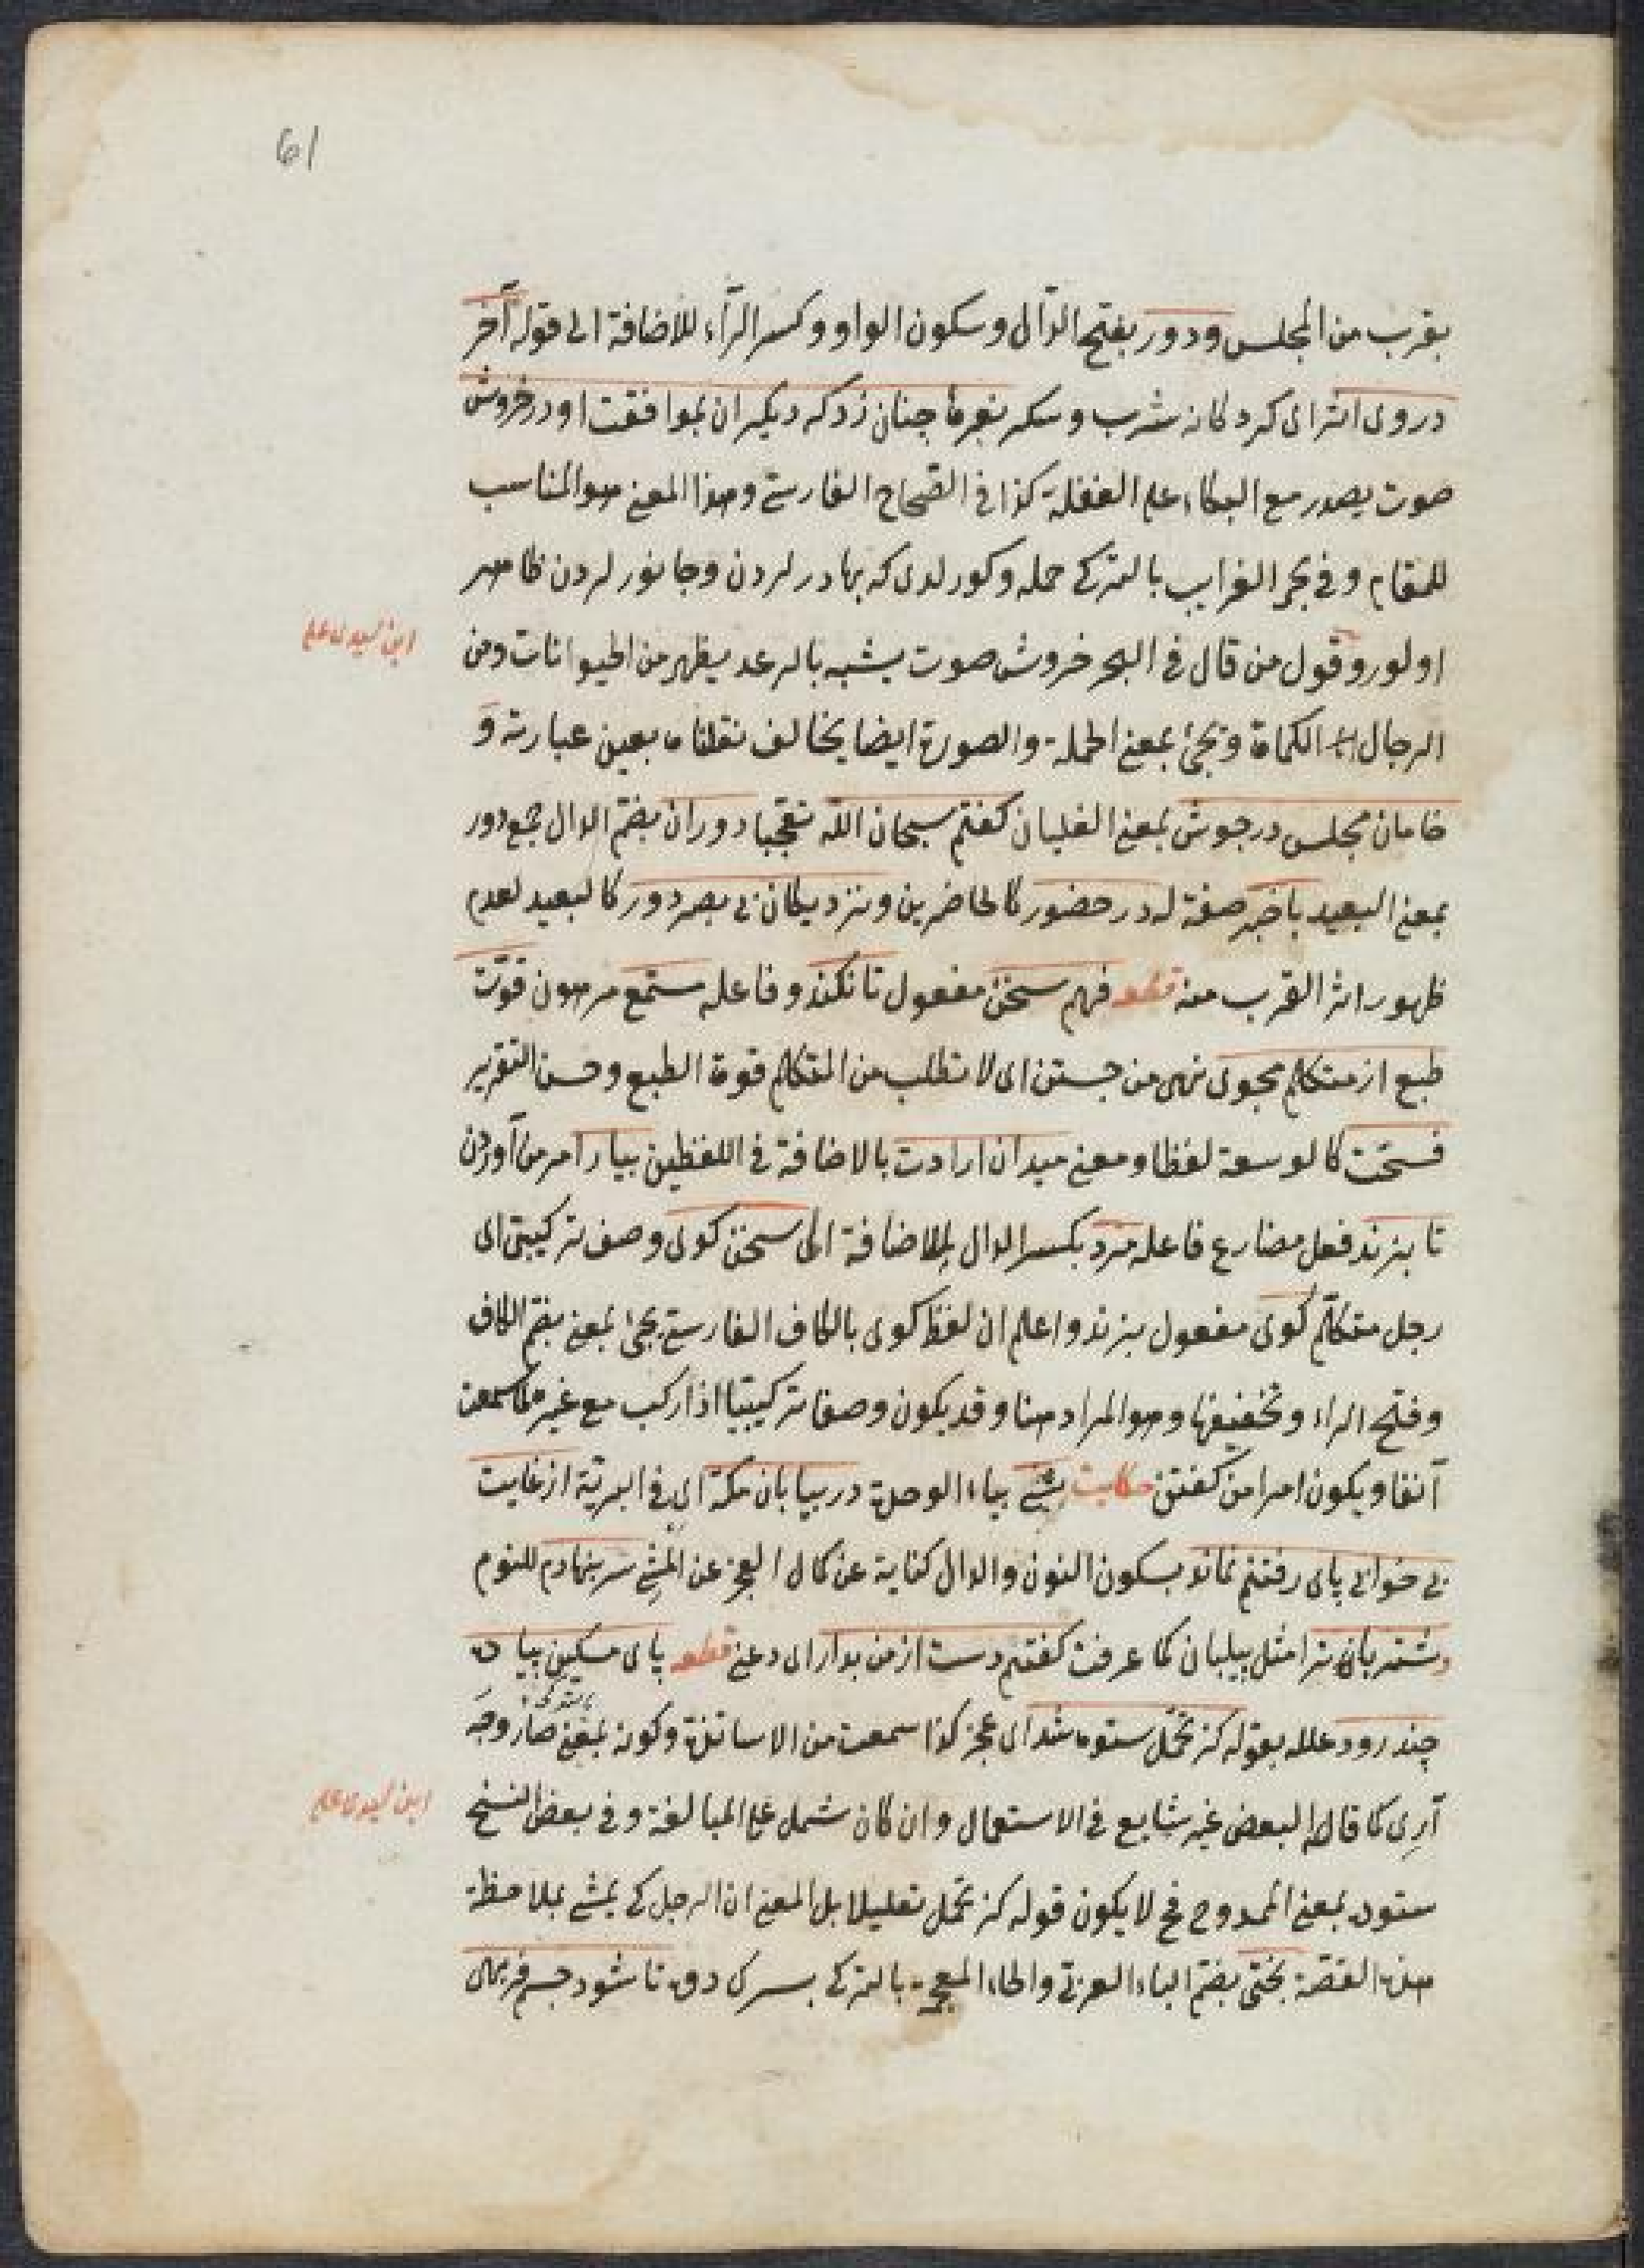 61
بقرب من المجلس ودور بفتح الدّال وسكون الواو وكسر الرّاء للاضافة الى قوله آخر
دروى اثر اى كرد كانه شرب وسكر نعره چنان زد كه ديكران بموافقت او در خروش
صوت يصدر مع البكاء على الغفلة كذا فى الصّحاح الفارسى وهذا المعنى هو المناسب
للمقام وفى بحر الغرايب بالتركى حمله وكورلدى كه بهادرلردن وجانورلردن ظاهر
اولور وقول من قال فى البحر خروش صوت يشبه بالرعد يظهر من الحيوانات ومن
ابن سيدى على
الرجال الكماة ويجئ بمعنى الحملة والصورة ايضا يخالف نقلناه بعين عبارته و
خامان مجلس در جوش بمعنى الغليان كفتم سبحان اللّه تعجبا دوران بضم الدال جمع دور
بمعنى البعيد باخبر صفة له در حضور كالحاضرين ونزديكان بى بصر دور كالبعيد لعدم
ظهور اثر القرب منه قطعه فهم سخن مفعول تا نكند وفاعله مستمع مرهون قوّت
طبع از متكلم مجوى نهى من جستن اى لا تطلب من المتكلم قوة الطبع وحسن التقرير
فسحت كالوسعة لفظا ومعنى ميدان ارادت بالاضافة فى اللفظين بيار امر من آوردن
تا بزند فعل مضارع فاعله مرد بكسر الدال للاضافة الى سخن كوى وصف تركيبى اى
رجل متكلّم كوى مفعول بزند واعلم ان لفظ كوى بالكاف الفارسى يجئ بمعنى بضم الكاف
وفتح الراء وتخفيفها وهو المراد هنا وقد يكون وصفا تركيبيا اذا ركب مع غيره كما سمعت
آنفا ويكون امرا من كفتن حكايت شبى بياء الوحدة در بيابان مكّه اى فى البريّة از غايت
بى خوابى پاى رفتنم نماند بسكون النون والدال كناية عن كمال العجز عن المشى سر بنهادم للنوم
وشتربان را مثل پيلبان كما عرفت كفتم دست از من بدار اى دعنى قطعه پاى مسكين پياده
چند رود علله بقوله كز تحمّل ستوه شد اى عجز كذا سمعت من الاساتذة وكونه بمعنى صار وجه
آرى كما قال البعض غير شايع فى الاستعمال وان كان شمل على المبالغة وفى بعض النسخ
ابن سيدى على
ستوده بمعنى الممدوح فح لا يكون قوله كز تحمّل تعليلا بل المعنى ان الرجل كى يمشى بملاحظة
هذه القصّة بختى بضم الباء العربى والخاء المعجمة بالتركى بسرك دوه تا شود جسم فربهى